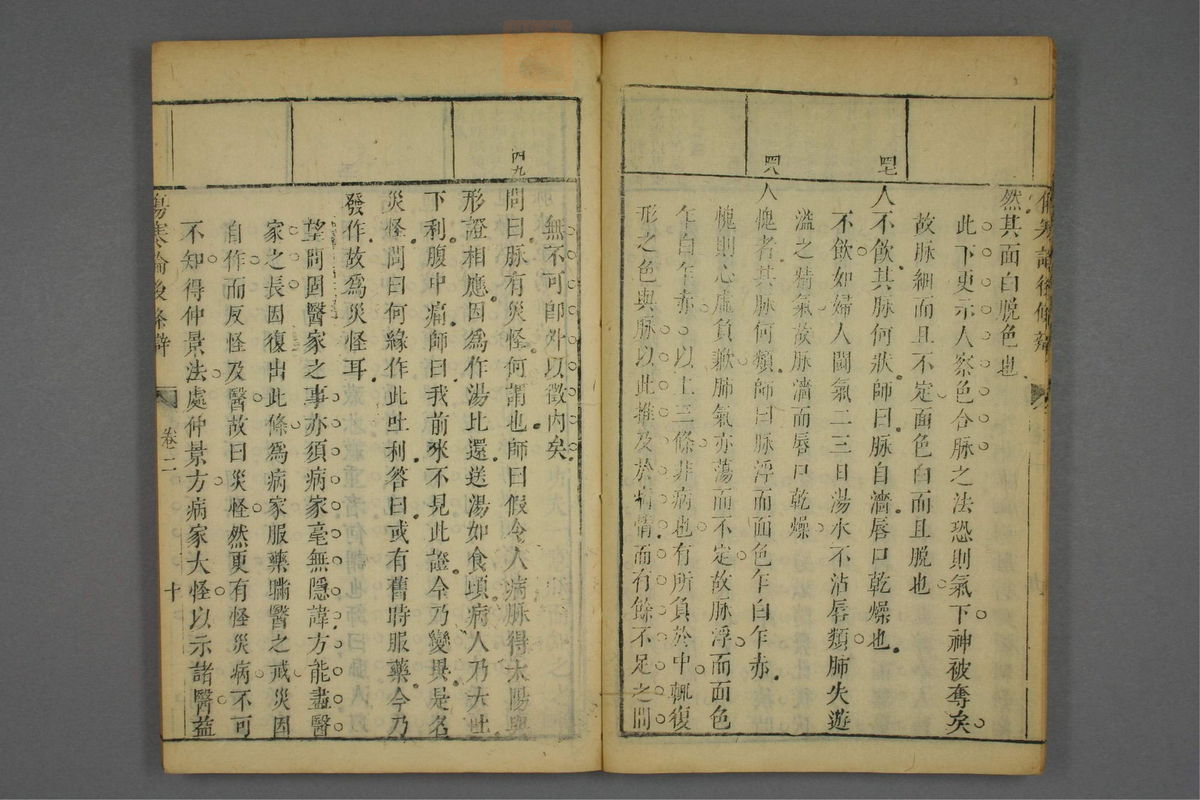 然其面白脫色也
此下更示人察色合脉之法恐則氣下神被奪矣
故脉細而且不定面色白而且脫也
四七
人不飲其脉何狀師曰脉自濇唇口乾燥也
不飲如婦人鬬氣二三日湯水不沾唇類肺失遊
溢之精氣故脉濇而唇口乾燥
四八
人愧者其脉何類師曰脉浮而面色乍白乍赤
愧則心虛負歉肺氣亦蕩而不定故脉浮而面色
乍白乍赤以上三條非病也有所負於中輒復
形之色與脉以此推及於病情而有餘不足之間
無不可卽外以徵內矣
四九
問曰脉有災怪何謂也師曰假令人病脉得太陽與
形證相應因爲作湯比還送湯如食頃病人乃大吐
下利腹中痛師曰我前來不見此證今乃變異是名
災怪問曰何緣作此吐利答曰或有舊時服藥今乃
發作故爲災怪耳
望問固醫家之事亦須病家毫無隱諱方能盡醫
家之長因復出此條爲病家服藥瞞醫之戒災因
自作而反怪及醫故曰災怪然更有怪災病不可
不知得仲景法處仲景方病家大怪以示諸醫益
傷寒論後條辯
卷二
十